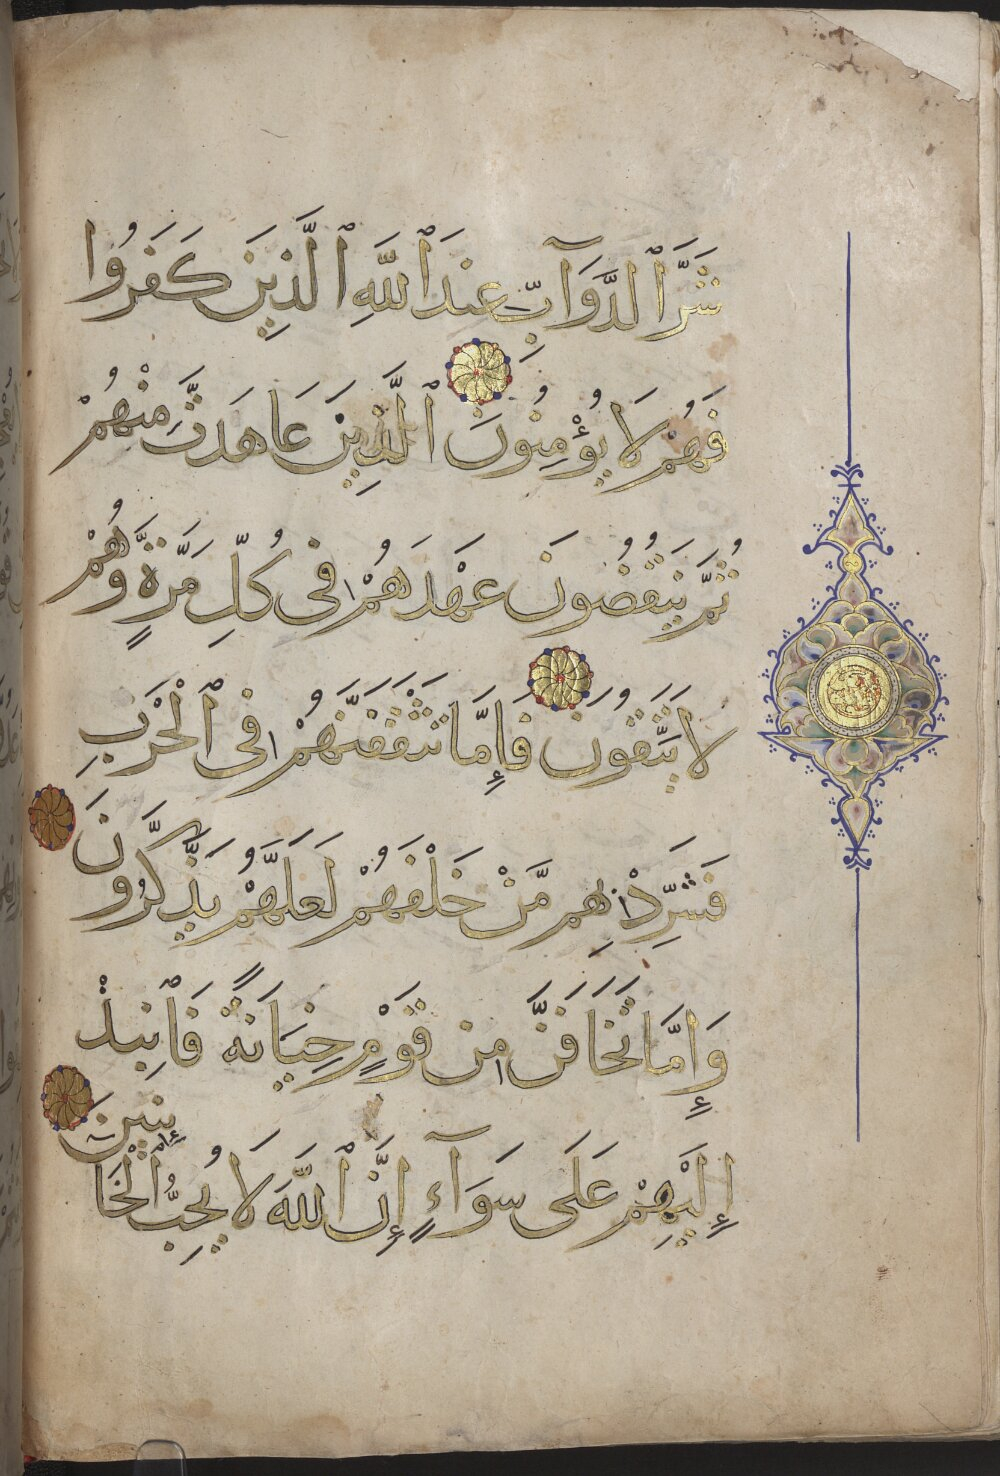 شَرَّ ٱلدَّوَآبِّ عِندَ ٱللَّهِ ٱلَّذِينَ كَفَرُوا
فَهُمْ لَا يُؤْمِنُونَ ٱلَّذِينَ عَاهَدتَّ مِنْهُمْ
ثُمَّ يَنقُضُونَ عَهْدَهُمْ فِى كُلِّ مَرَّةٍ وَهُمْ
لَا يَتَّقُونَ فَإِمَّا تَثْقَفَنَّهُمْ فِى ٱلْحَرْبِ
فَشَرِّدْ بِهِم مَّنْ خَلْفَهُمْ لَعَلَّهُمْ يَذَّكَّرُونَ
وَإِمَّا تَخَافَنَّ مِن قَوْمٍ خِيَانَةً فَٱنۢبِذْ
إِلَيْهِمْ عَلَى سَوَآءٍ إِنَّ ٱللَّهَ لَا يُحِبُّ ٱلْخَائِنِينَ